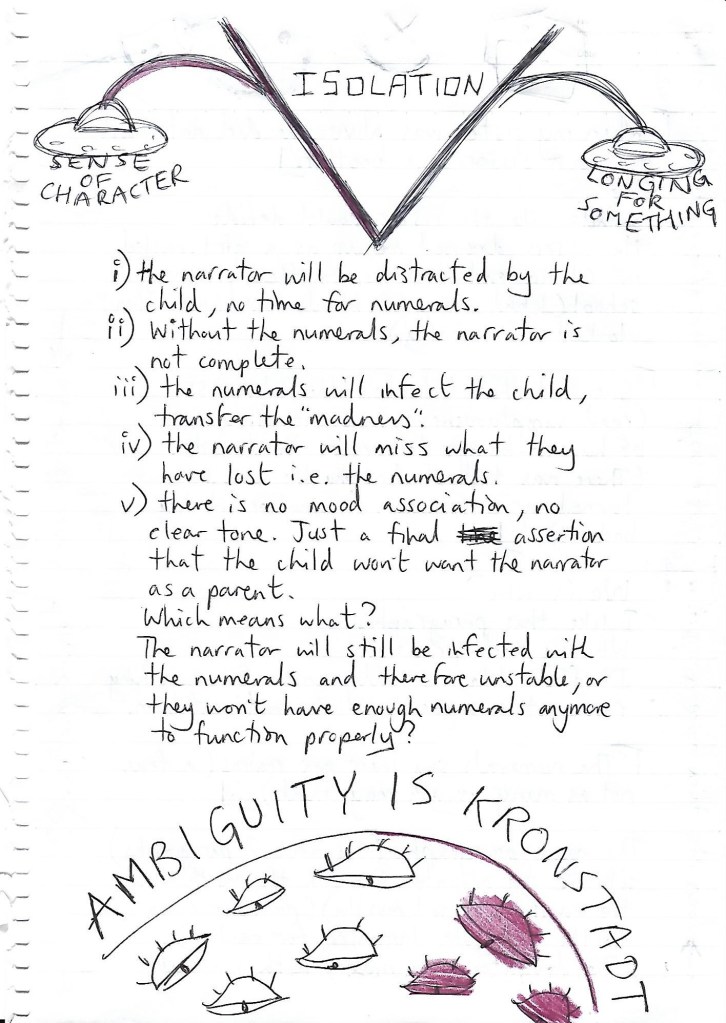 ISOLATION
SENSE
OF
CHARACTER
LONGING
FOR
SOMETHING
i) the narrator will be distracted by the
child, no time for numerals.
ii) Without the numerals, the narrator is
not complete.
iii) the numerals will infect the child,
transfer the "madness".
iv) the narrator will miss what they
have lost i.e. the numerals.
v) there is no mood association, no
clear tone. Just a final assertion
that the child won't want the narrator
as a parent.
Which means what?
The narrator will still be infected with
the numerals and therefore unstable, or
they won't have enough numerals anymore
to function properly?
AMBIGUITY IS KRONSTADT